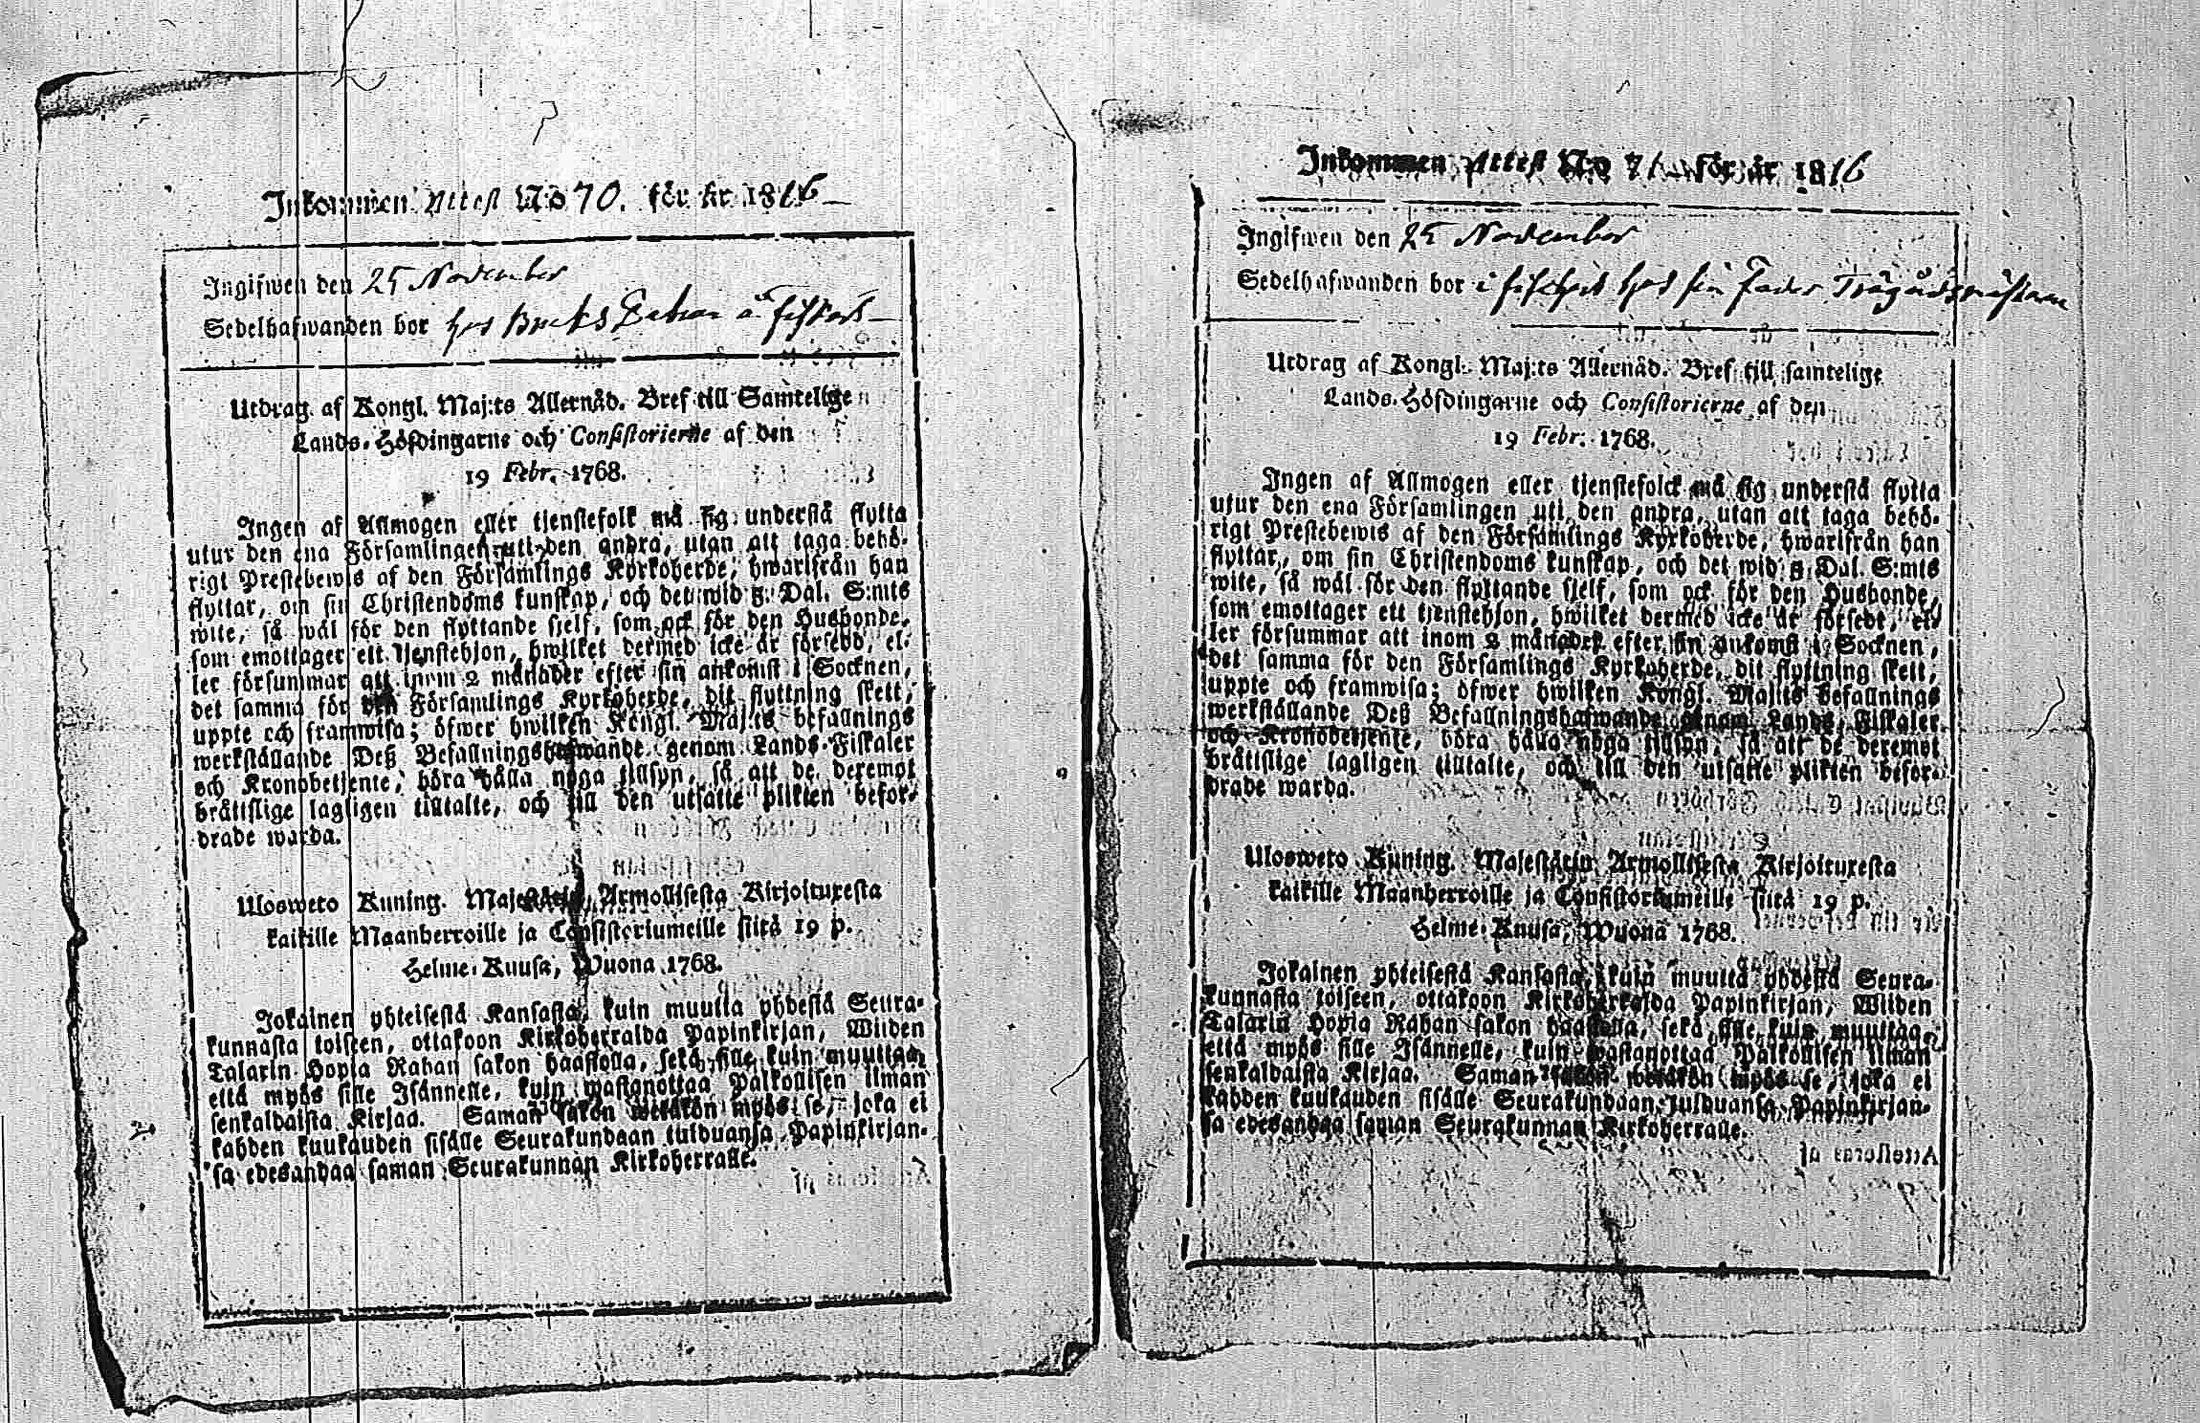 Inkommen Attest N:o 70. för år 1816
Ingifwen den 25 November
Sedelhafwanden bor hos Bruks
Utdrag af Kongl. Maj:ts Allernåd. Bref till Samtelige
Lands-Höfdingarne och Consistorierne af den
19 Febr. 1768.
Ingen af Allmogen eller tjenstefolk må sig understå flytta
utur den ena Församlingen uti den andra, utan att taga behö-
rigt Prestebewis af den Församlings Kyrkoherde, hwarifrån han
flyttar, om sin Christendoms kunskap, och det wid 5. Dal. S:mts
wite, så wäl för den flyttande sjelf, som ock för den Husbonde,
som emottager ett tjenstehjon, hwilket dermed icke är försedd, el-
ler försummar att inom 2 månader efter sin ankomst i Socknen,
det samma för den Församlings Kyrkoherde, dit flyttning skett,
uppte och framwisa; öfwer hwilken Kongl. Maj:ts befallnings
werkställande Deß Befallningshafwande genom Lands-Fiskaler
och Kronobetjente, böra hålla noga tillsyn, så att de deremot
bråttslige lagligen tilltalte, och till den utsatte plikten befor-
drade warda.
Ulosweto Kuning. Majestätin Armollisesta Kirjoituxesta
kaikille Maanherroille ja Consistoriumeille siitä 19 p.
Helme-Kuusa, Wuona 1768.
Jokainen yhteisestä Kansasta, kuin muutta yhdestä Seura-
kunnasta toiseen, ottakoon Kirkoherralda Papinkirjan, Wiiden
Talarin Hopia Rahan sakon haastolla, sekä sille kuin muuttaa,
että myös sille Isännelle, kuin wastanottaa Palkollisen ilman
senkaldaista Kirjaa. Saman sakon wetäkön myös se, joka ei
kahden kuukauden sisälle Seurakundaan tulduansa Papinkirjan-
sa edesandaa saman Seurakunnan Kirkoherralle.
Inkommen Attest N:o 71 för år 1816
Ingifwen den 25 November
Sedelhafwanden bor i hos sin Fader Trägårdsmästare
Utdrag af Kongl. Maj:ts Allernåd. Bref till samtelige
Lands-Höfdingarne och Consistorierne af den
19 Febr. 1768.
Ingen af Allmogen eller tjenstefolck må sig understå flytta
utur den ena Församlingen uti den andra, utan att taga behö-
rigt Prestebewis af den Församlings Kyrkoherde, hwarifrån han
flyttar, om sin Christendoms kunskap, och det wid 5 Dal. S:mts
wite, så wäl för den flyttande sjelf, som ock för den Husbonde,
som emottager ett tjenstehjon, hwilket dermed icke är försedt, el-
ler försummar att inom 2 månader efter sin ankomst i Socknen,
det samma för den Församlings Kyrkoherde, dit flyttning skett,
uppte och framwisa; öfwer hwilken Kongl. Maj:ts befallnings
werkställande Deß Befallningshafwande genom Lands-Fiskaler
och Kronobetjente, böra hålla noga tillsyn, så att de deremot
bråttslige lagligen tilltalte, och till den utsatte plikten befor-
drade warda.
Ulosweto Kuning. Majestätin Armollisesta Kirjoituxesta
kaikille Maanherroille ja Consistoriumeille siitä 19 p.
Helme-Kuusa, Wuona 1768.
Jokainen yhteisestä Kansasta, kuin muutta yhdestä Seura-
kunnasta toiseen, ottakoon Kirkoherralda Papinkirjan, Wiiden
Talarin Hopia Rahan sakon haastolla, sekä sille kuin muuttaa,
että myös sille Isännelle, kuin wastanottaa Palkollisen ilman
senkaldaista Kirjaa. Saman sakon wetäkön myös se, joka ei
kahden kuukauden sisälle Seurakundaan tulduansa Papinkirjan-
sa edesandaa saman Seurakunnan Kirkoherralle.